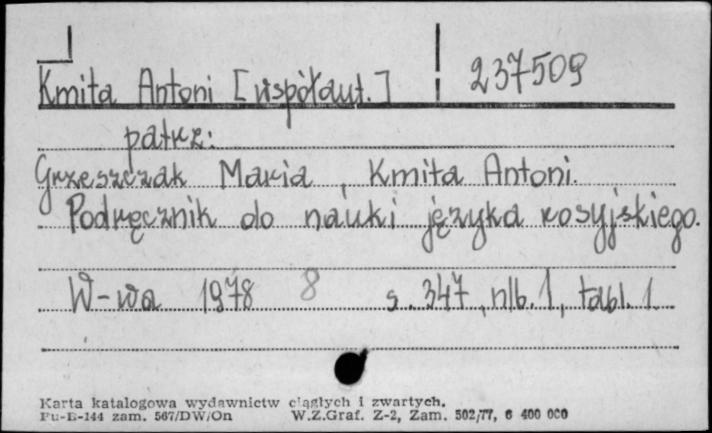 Kmita Antoni [współaut.] 237509
patrz:
Grzeszczak Maria, Kmita Antoni.
Podręcznik do nauki języka rosyjskiego.
W-wa 1978 8 s. 347, nlb. 1, tabl. 1
Karta katalogowa wydawnictw ciągłych i zwartych.
Pu-B-144 zam. 567/DW/On W.Z.Graf. Z-2, Zam. 502/77, 6 400 000